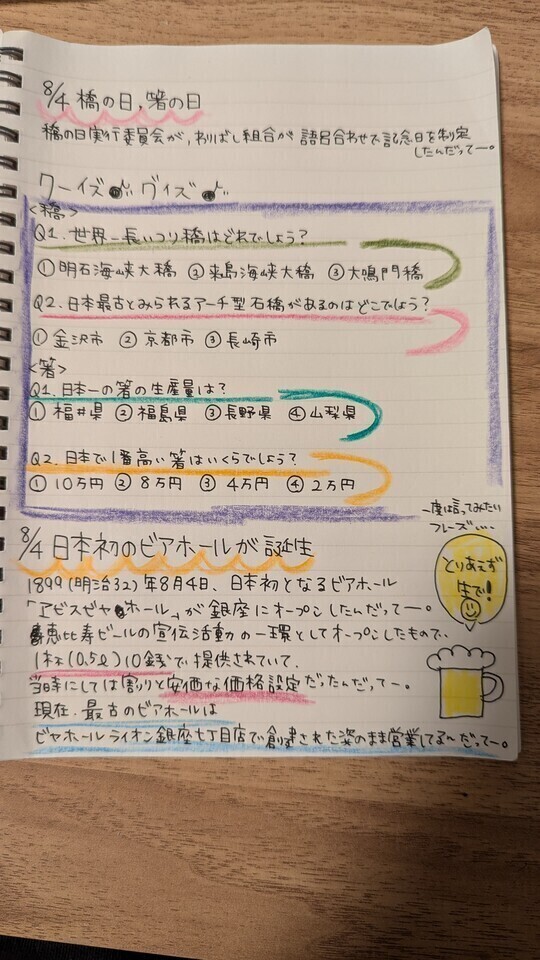 8/4 橋の日,箸の日
橋の日実行委員会が,わりばし組合が 語呂合わせで記念日を制定
したんだってー。
クーイズ♪ グイズ♪
<橋>
Q1.世界一長いつり橋はどれでしょう?
①明石海峡大橋 ②来島海峡大橋 ③大鳴門橋
Q2.日本最古とみられるアーチ型石橋があるのはどこでしょう?
①金沢市 ②京都市 ③長崎市
<箸>
Q1.日本一の箸の生産量は?
①福井県 ②福島県 ③長野県 ④山梨県
Q2.日本で1番高い箸はいくらでしょう?
①10万円 ②8万円 ③4万円 ④2万円
一度は言ってみたい
フレーズ・・・
とりあえず
生で!
8/4 日本初のビアホールが誕生
1899(明治32)年8月4日、日本初となるビアホール
「アビスビヤホール」が銀座にオープンしたんだってー。
恵比寿ビールの宣伝活動の一環としてオープンしたもので、
1杯(0.5ℓ)10銭で提供されていて、
当時にしては割りと安価な価格設定だったんだってー。
現在、最古のビアホールは
ビヤホールライオン銀座七丁目店で創建された姿のまま営業してるんだってー。